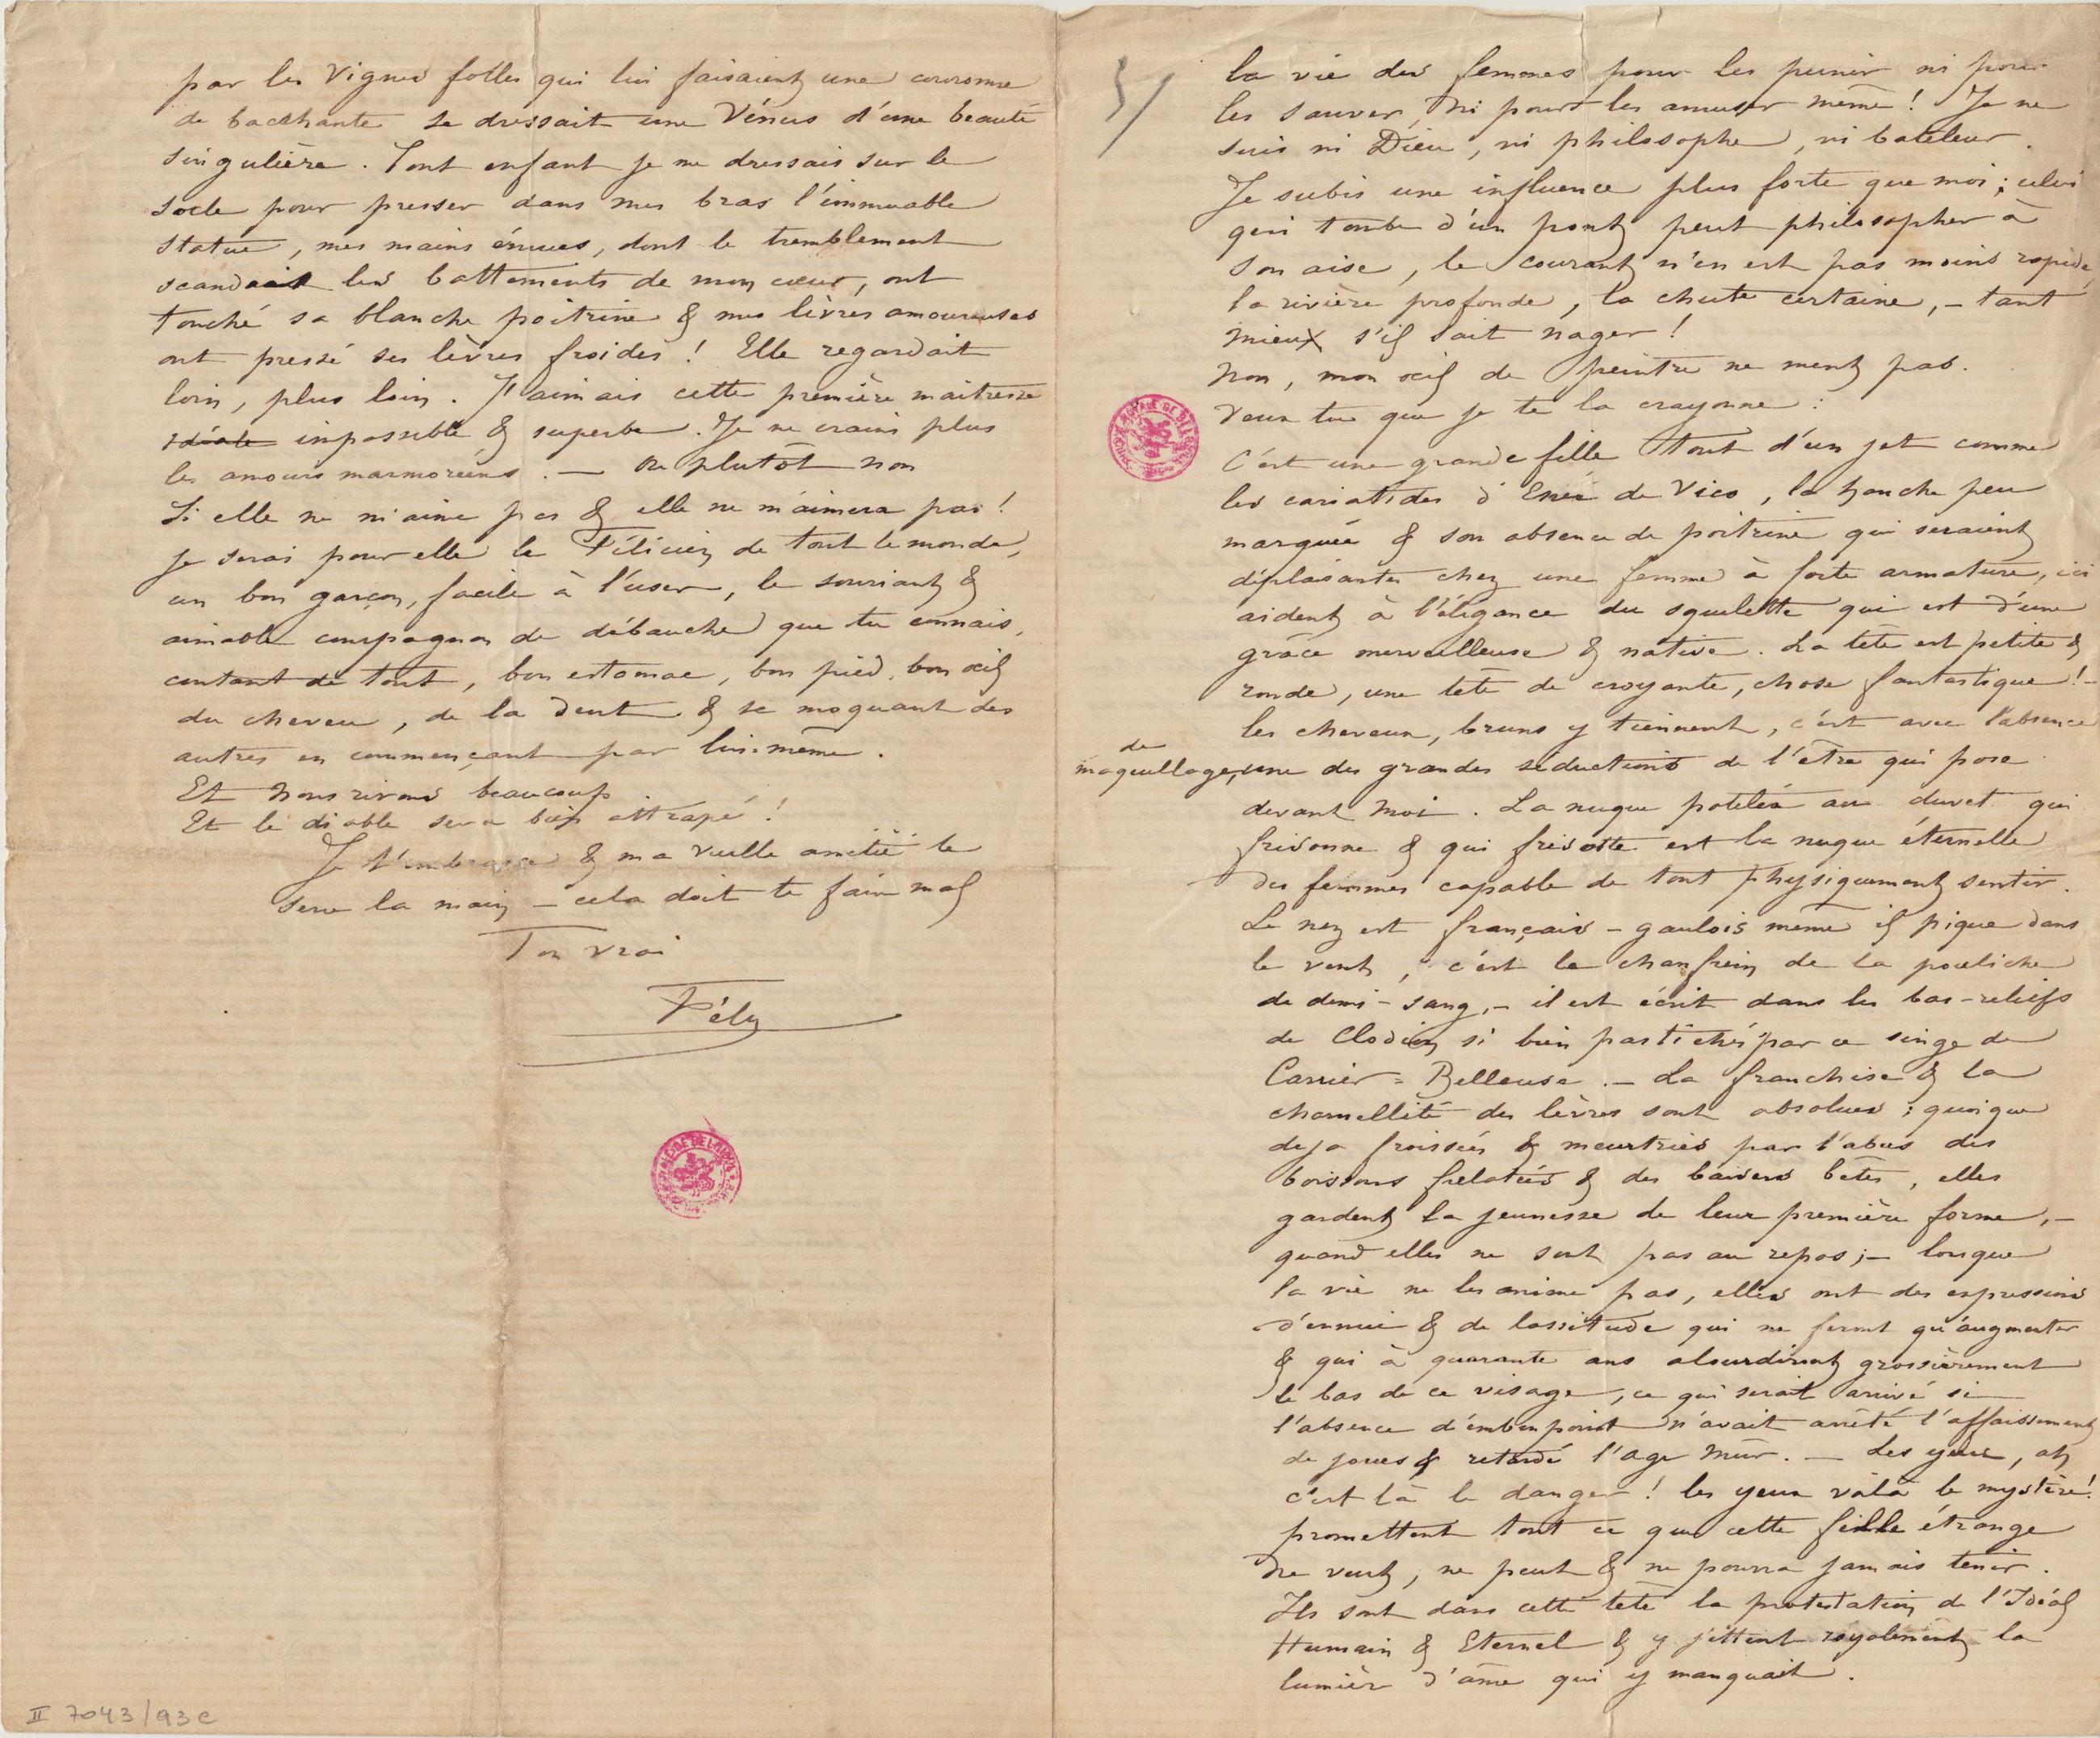 par les vignes folles qui lui faisaient une couronne
de bacchante se dressait une Vénus d'une beauté
singulière. Tout enfant je me dressais sur le
socle pour presser dans mes bras l'immuable
statue, mes mains émues, dont le tremblement
scandait les battements de mon cœur, ont
touché sa blanche poitrine & mes lèvres amoureuses
ont pressé ses lèvres froides ! Elle regardait
loin, plus loin. J'aimais cette première maitresse
idéale impossible & superbe. Je ne crains plus
les amours marmoréens. — Ou plutôt non
Si elle ne m'aime pas & elle ne m'aimera pas !
je serai pour elle le Félicien de tout le monde,
un bon garçon, facile à l'user, le souriant &
aimable compagnon de débauche que tu connais,
contant de tout, bon estomac, bon pied, bon œil
du cheveu, de la dent & se moquant des
autres en commençant par lui-même.
Et nous rirons beaucoup
Et le diable sera bien attrapé !
Je t'embrasse & ma vieille amitié te
serre la main — cela doit te faire mal
Ton vrai
Fély
II 7043/93 c
la vie des femmes pour les punir ni pour
les sauver, ni pour les amuser même ! Je ne
suis ni Dieu, ni philosophe, ni bateleur.
Je subis une influence plus forte que moi ; celui
qui tombe d'un pont peut philosopher à
son aise, le courant n'en est pas moins rapide,
la rivière profonde, la chute certaine, – tant
mieux s'il sait nager !
Non, mon œil de peintre ne ment pas.
Veux tu que je te la crayonne :
C'est une grande fille tout d'un jet comme
les cariatides d'Enéa de Vico, la hanche peu
marquée & son absence de poitrine qui seraient
déplaisantes chez une femme à forte armature, ici
aident à l'élégance du squelette qui est d'une
grâce merveilleuse & native. La tête est petite &
ronde, une tête de croyante, chose fantastique ! –
les cheveux, bruns y tiennent, c'est avec l'absence
de
maquillage, une des grandes séductions de l'être qui pose
devant moi. La nuque potelée au duvet qui
frisonne & qui frisotte est la nuque éternelle
des femmes capable de tout physiquement sentir.
Le nez est français – gaulois même il pique dans
le vent, c'est le chanfrein de la pouliche
de demi-sang, – il est écrit dans les bas-reliefs
de Clodion si bien pastichés par ce singe de
Carrier-Belleuse. – La franchise & la
charnellité des lèvres sont absolues ; quoique
deja froissées & meurtries par l'abus des
boissons frelatées & des baisers bêtes, elles
gardent la jeunesse de leur première forme, –
quand elles ne sont pas au repos ; – lorsque
la vie ne les anime pas, elles ont des expressions
d'ennui & de lassitude qui ne feront qu'augmenter
& qui à quarante ans alourdiront grossièrement
le bas de ce visage, ce qui serait arrivé si
l'absence d'embonpoint n'avait arrêté l'affaissement
de joues & retardé l'age mûr. — Les yeux, ah
c'est là le danger ! les yeux voilà le mystère !
promettent tout ce que cette fille étrange
ne veut, ne peut & ne pourra jamais tenir.
Ils sont dans cette tête la protestation de l'Idéal
Humain & Eternel & y jettent royalement la
lumière d'âme qui y manquait.